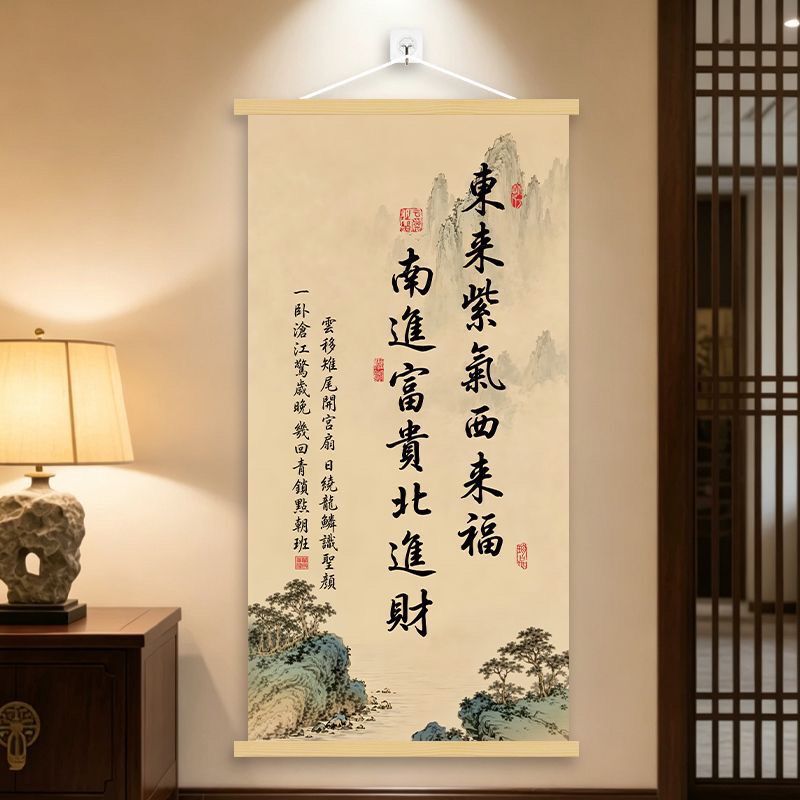 東来紫氣西来福
南進富貴北進財
雲移雉尾開宮扇 日繞龍鱗識聖顏
一卧滄江驚歳晚 幾回青鎖點朝班